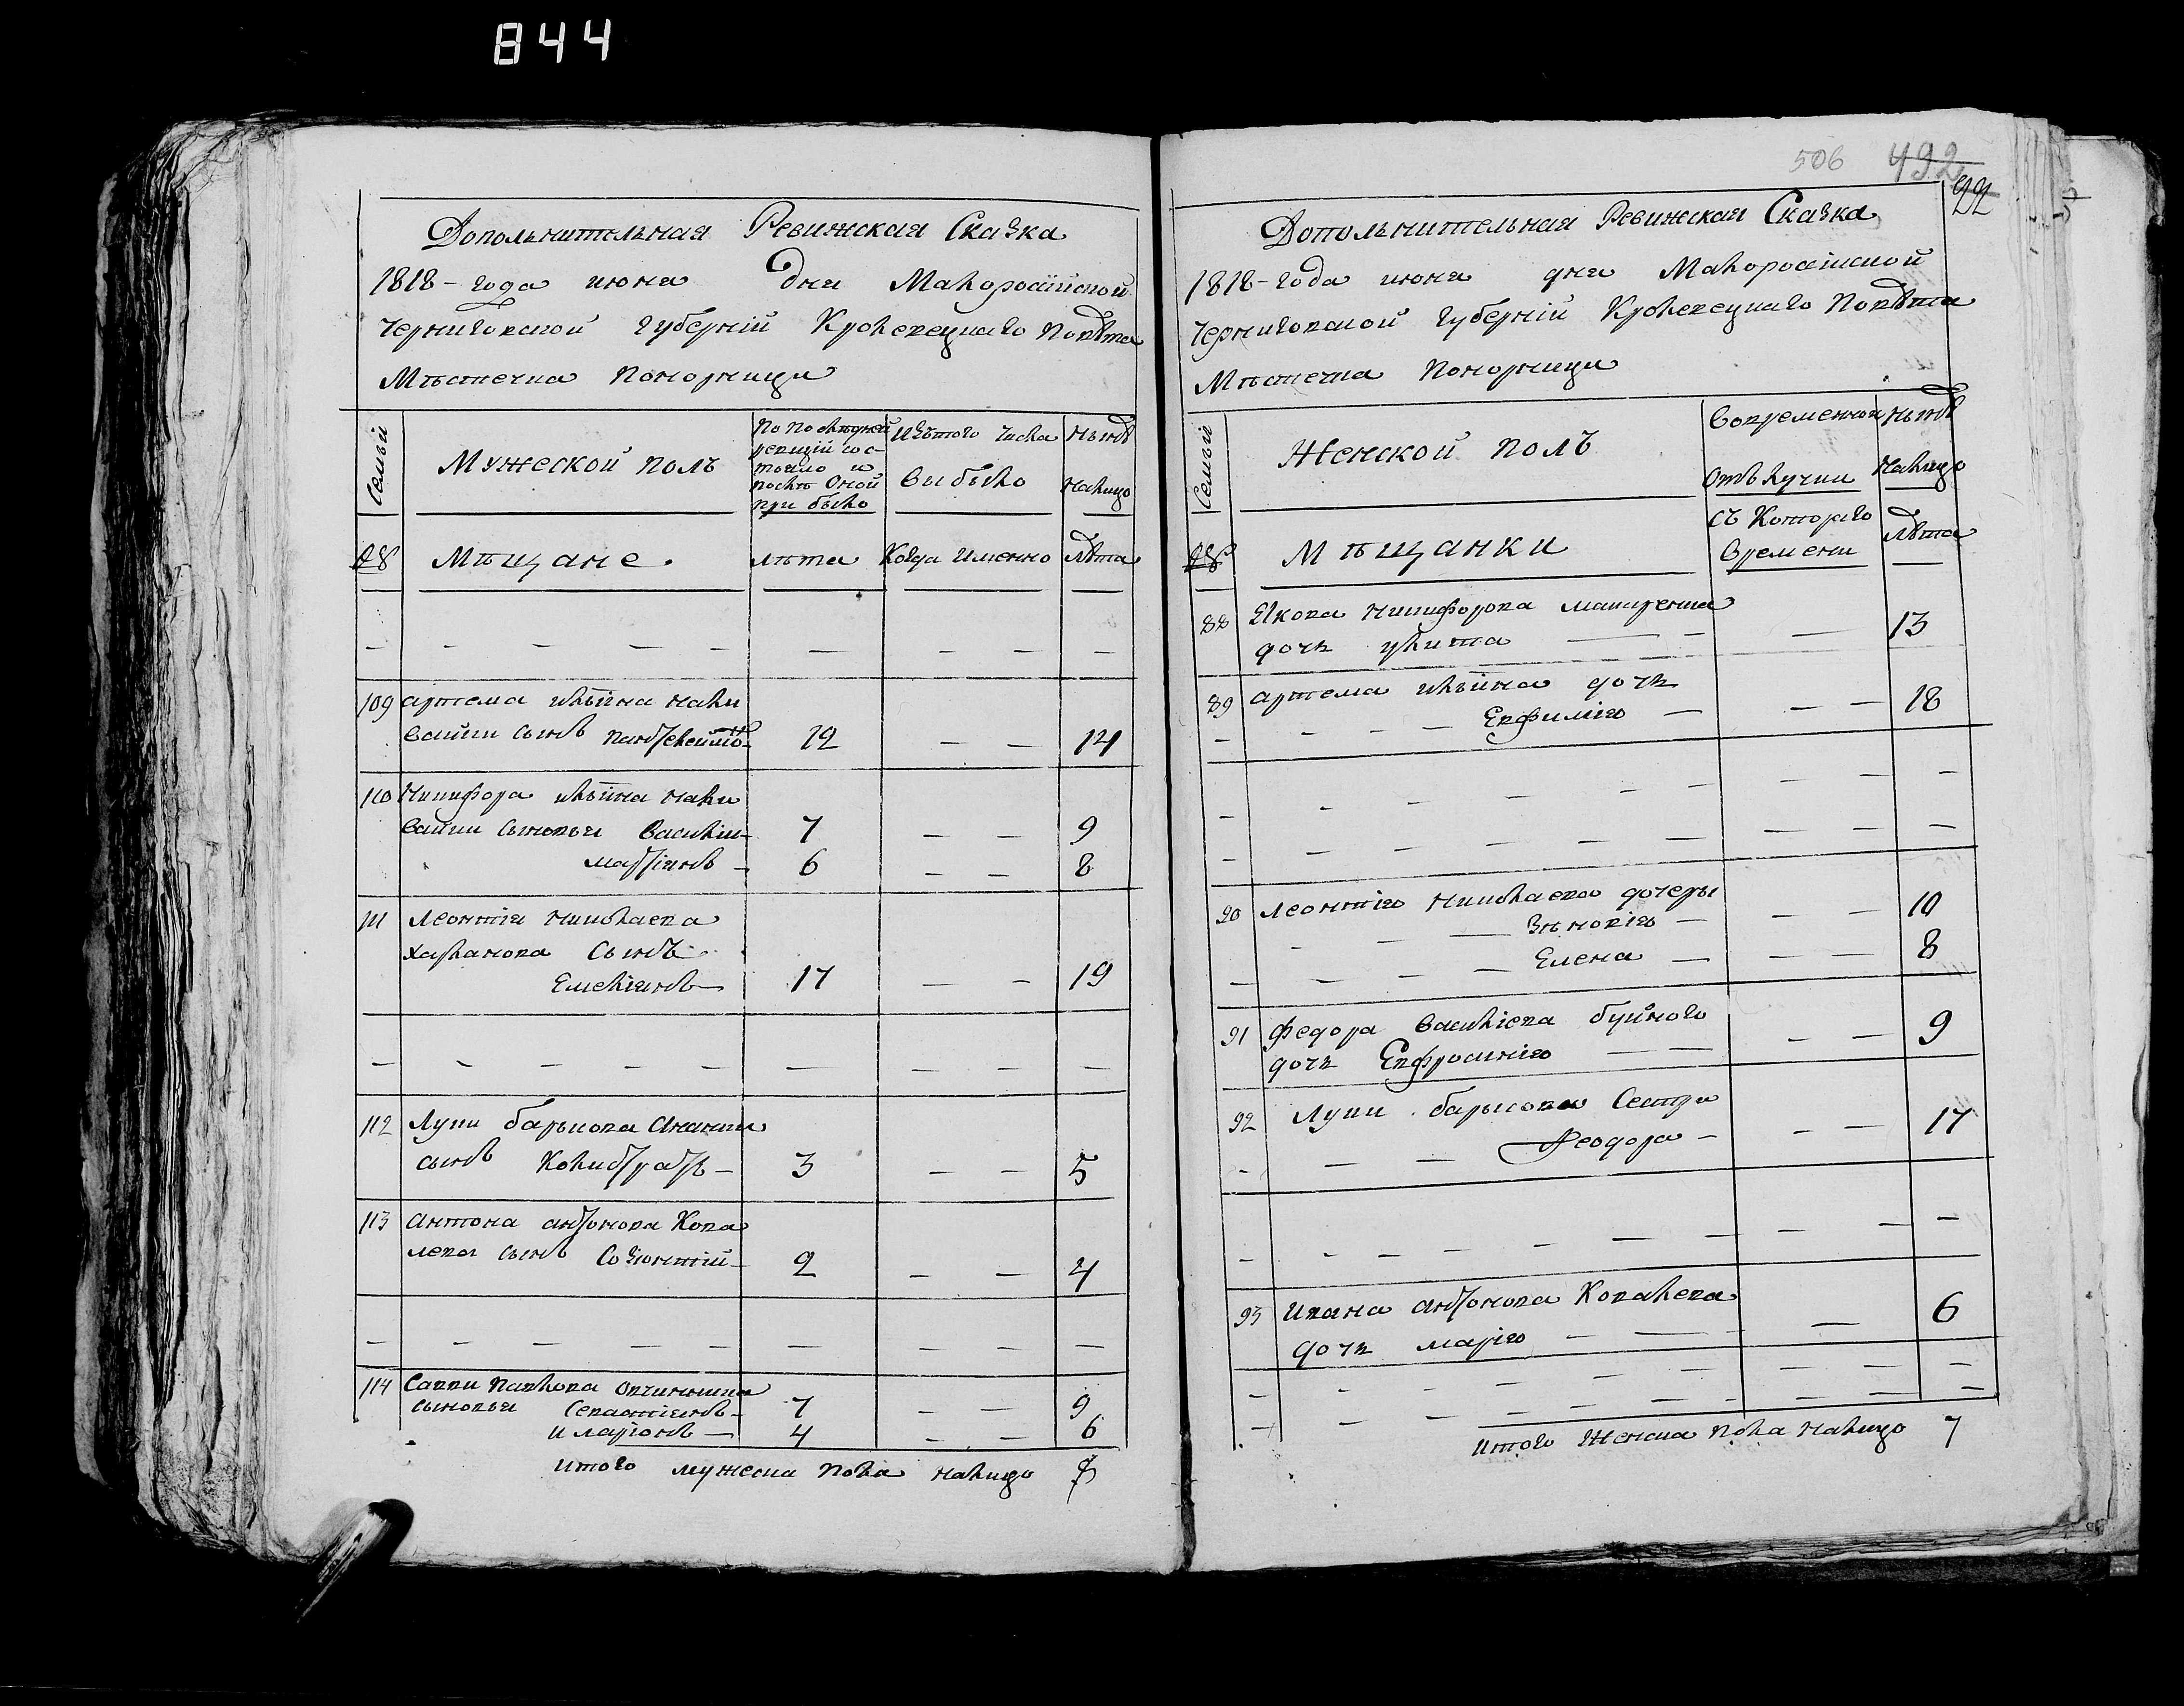 844
Дополънителная Ревижская Сказка
1818 - года июня дня Малороссійской
Черниговской губерніи Кролевецкаго Повѣта
Мѣстечка Понорници
Семьи
Мужеской полъ
По послѣдней ревизіи состояло и послѣ оной прибыло
Изътого числа выбыло
Нынѣ налицо
№ Мѣщане. лѣта Когда именно лѣта
109 Артема ильина нали
вайки сынъ 12 — — 14
110 Никифора ильина нали
вайки сыновья Василій 7 — — 9
мартинъ 6 — — 8
111 Леонтія николаева
сынъ
Емеліянъ 17 — — 19
112 Лупи барисова
сынъ Колистратъ 3 — — 5
113 Антона антонова Кова
лева сынъ Созонтій 2 — — 4
114 Савви Павлова
сыновья Севастіянъ 7 — — 9
иларіонъ 4 — — 6
итого мужеска пола налицо
506 492
22
Дополънительная Ревижская Сказка
1818 - года июня дня Малороссійской
Черниговской губерніи Кролевецкаго Повѣта
Мѣстечка Понорници
Семьи
Женской полъ
Вовременной отълучки
Нынѣ налицо
№ Мѣщанки
Съ Котораго Времени
лѣта
88 Якова Никифорова
дочь улита — 13
89 Артема ильина дочь
Евфимія — — 18
90 Леонтія Николаева дочеры
Зѣновія — — 10
Елена — — 8
91 Федора Василіева буйного
дочь Евфросинія — — 9
92 Лупи барисова Сестра
Феодора — — 17
93 Ивана антонова Ковалева
дочь марія — 6
итого Женска пола налицо 7